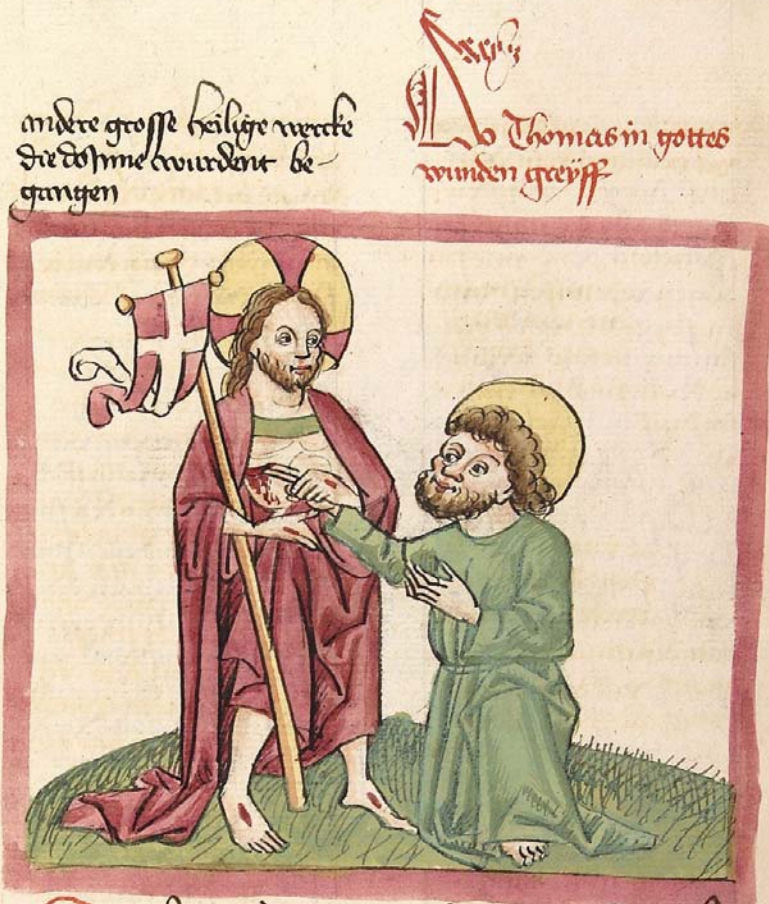 andere grosse heilige wercke
die do Inne wurdent be-
gangen
Thomas in gottes
wunden greyff